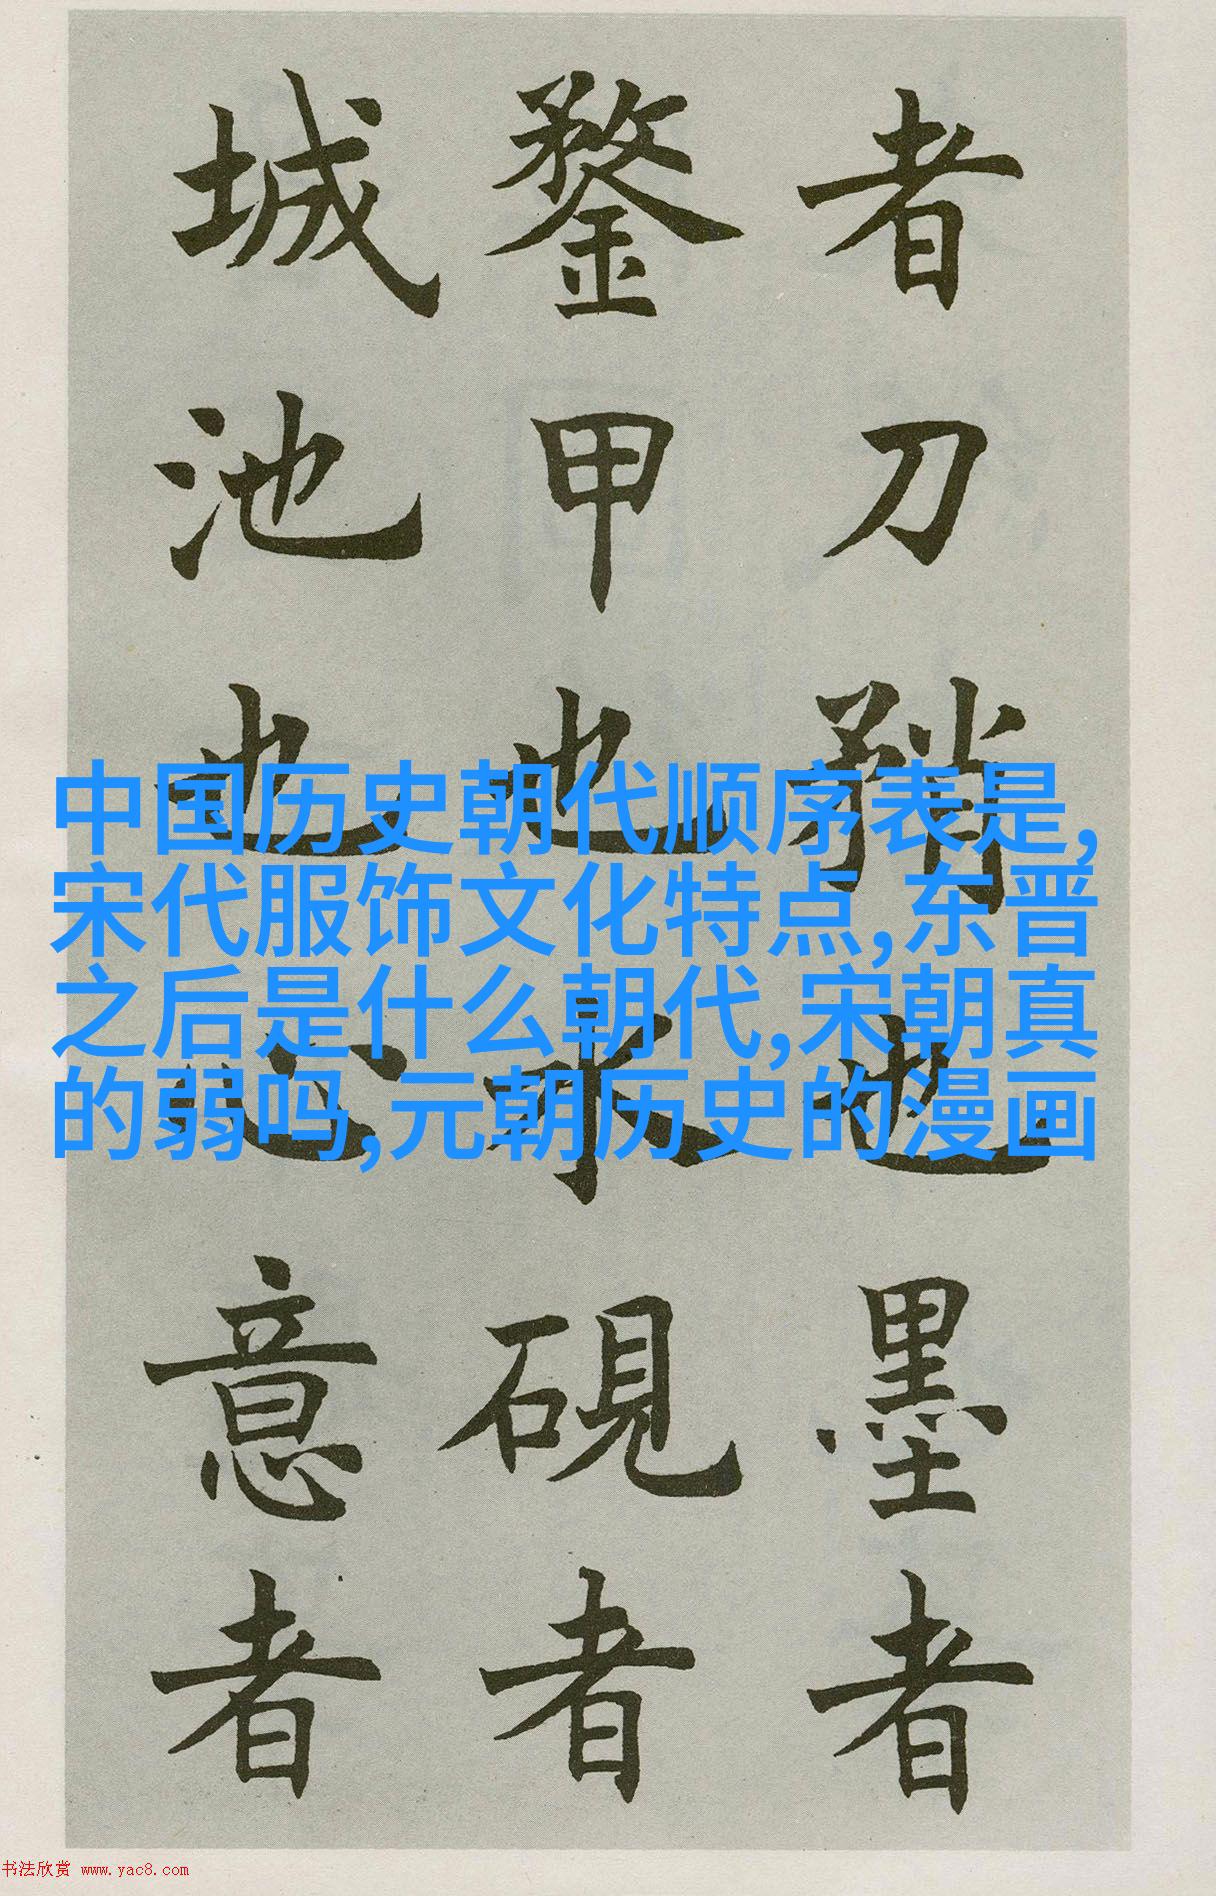 者刀矟也墨者
鍪甲也水硯者
城池也心意者
中国历史朝代顺序表是,
宋代服饰文化特点,东晋
之后是什么朝代,宋朝真
的弱吗,元朝历史的漫画
书法欣赏 www.yac8.com